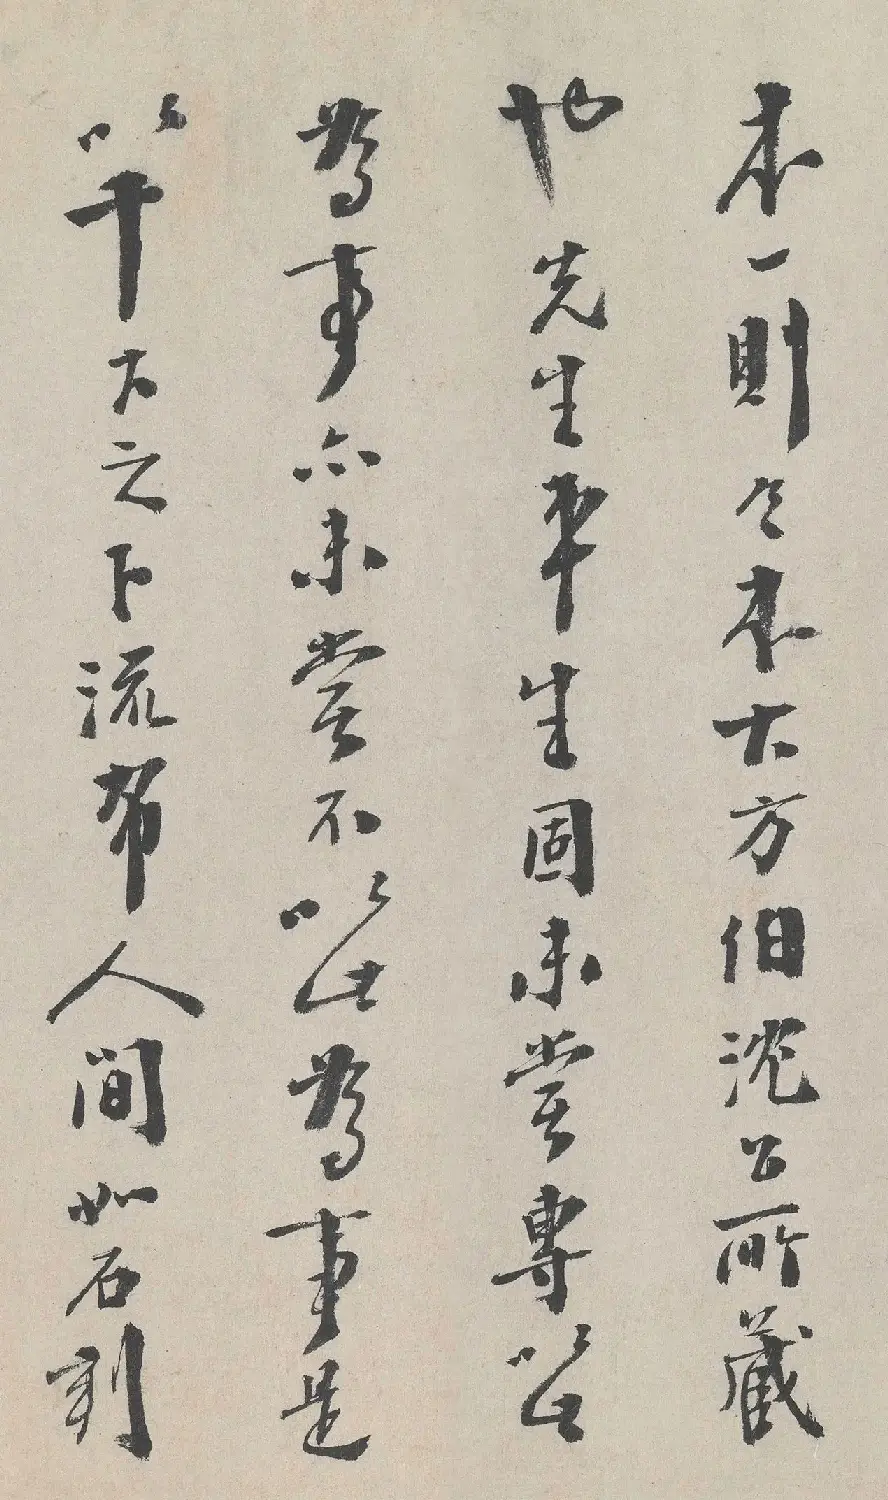 本一則今本大方伯沈公所藏
也先生平生固未嘗專以此
爲事亦未嘗不以此爲事是
以千之下流布人間如石刻